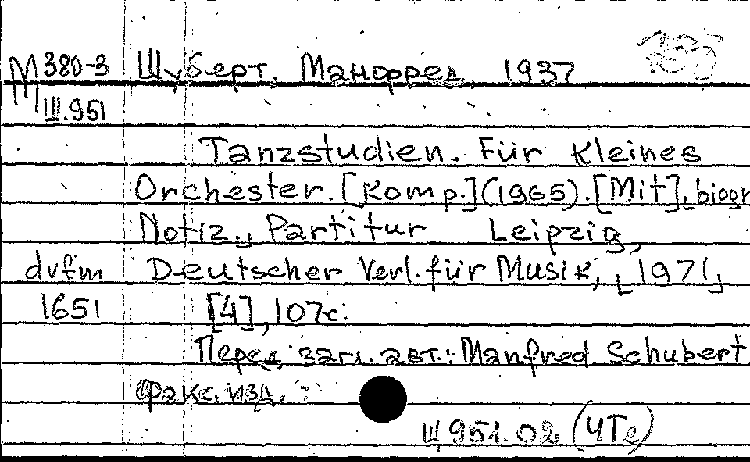 М 380-3 Шуберт, Манфред, 1937
Ш.951
Tanzstudien. Für Kleines
Orchester. [Komp.] (1965). [Mit] biogr.
Notiz., Partitur Leipzig,
dvfm Deutscher Verl. für Musik, [1971]
1651 [4], 107 с.
Перед загл. авт.: Manfred Schubert
Факс. изд.
Щ951.02 (4Ге)